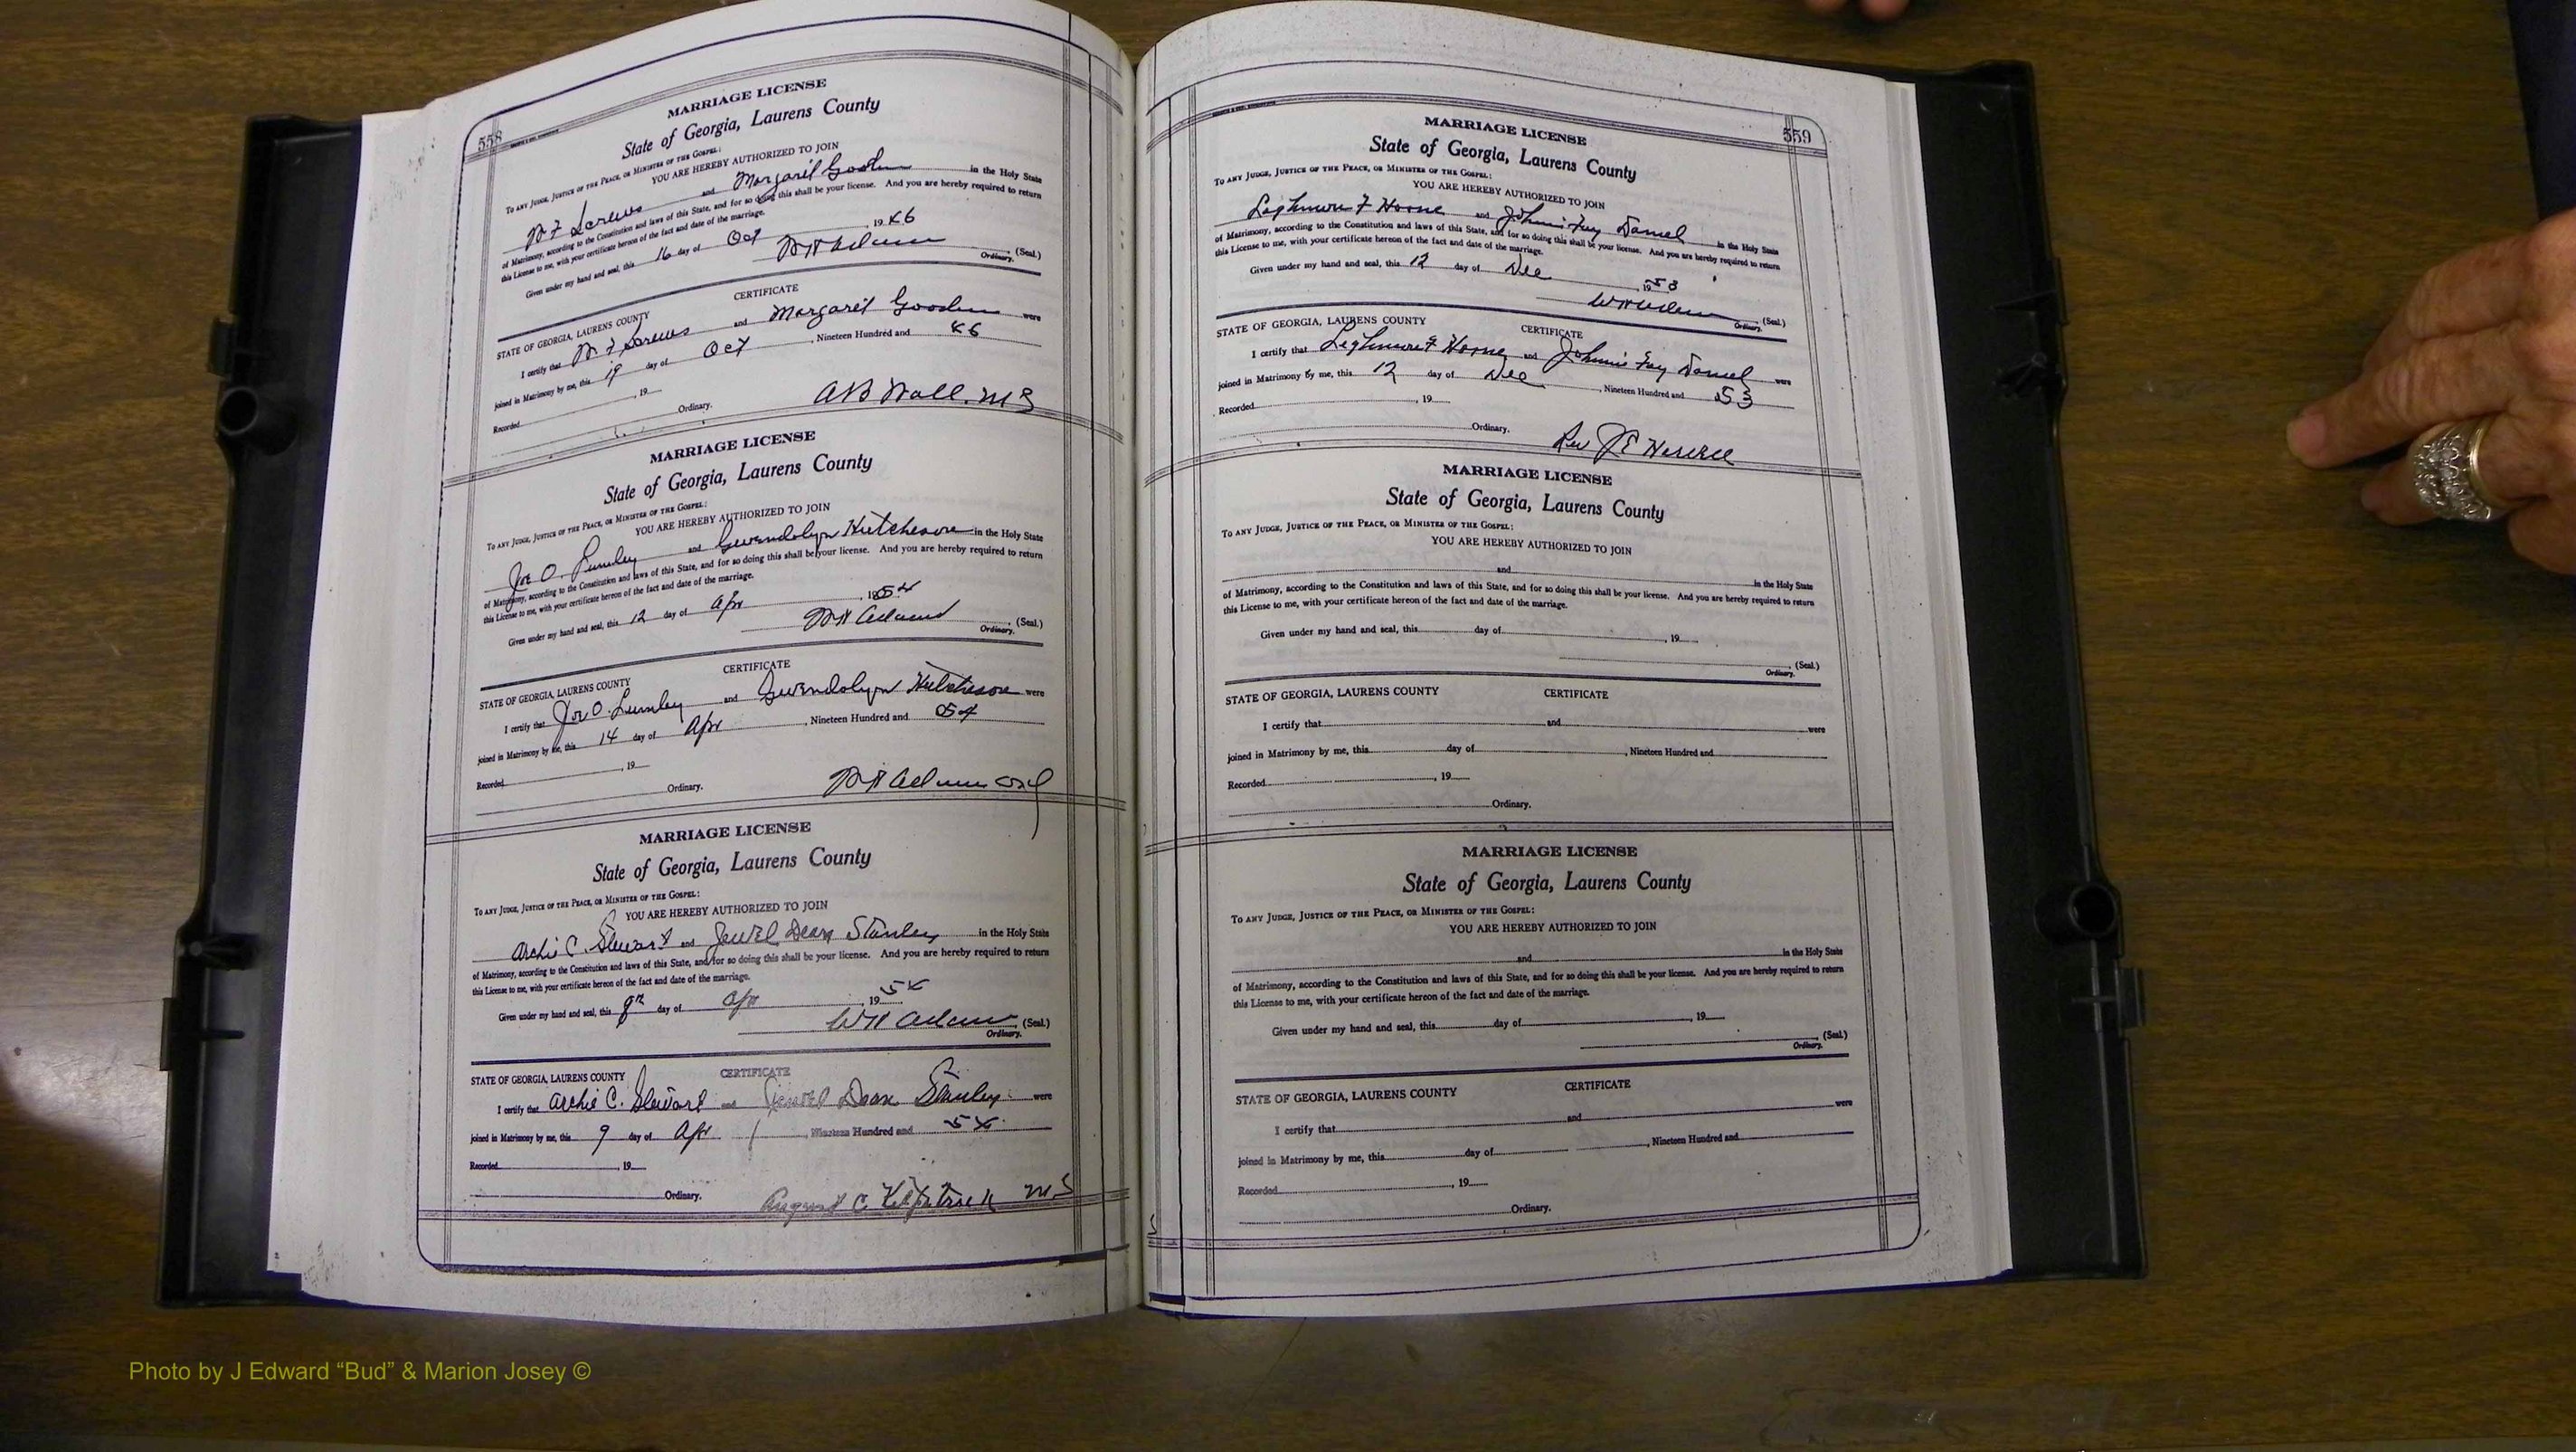 558
MARRIAGE LICENSE
State of Georgia, Laurens County
To any Judge, Justice of the Peace, or Minister of the Gospel:
YOU ARE HEREBY AUTHORIZED TO JOIN
and Margaret in the Holy State
of Matrimony, according to the Constitution and laws of this State, and for so doing this shall be your license. And you are hereby required to return
this License to me, with your certificate hereon of the fact and date of the marriage.
Given under my hand and seal, this 16 day of Oct, 1946
(Seal.)
Ordinary.
CERTIFICATE
STATE OF GEORGIA, LAURENS COUNTY
I certify that and Margaret were
joined in Matrimony by me, this 19 day of Oct, Nineteen Hundred and 46
Recorded, 19
Ordinary.
MARRIAGE LICENSE
State of Georgia, Laurens County
To any Judge, Justice of the Peace, or Minister of the Gospel:
YOU ARE HEREBY AUTHORIZED TO JOIN
Joe O. and Gwendolyn Hutcheson in the Holy State
of Matrimony, according to the Constitution and laws of this State, and for so doing this shall be your license. And you are hereby required to return
this License to me, with your certificate hereon of the fact and date of the marriage.
Given under my hand and seal, this 12 day of Apr, 1954
W H Adams (Seal.)
Ordinary.
CERTIFICATE
STATE OF GEORGIA, LAURENS COUNTY
I certify that Joe O. Lumley and Gwendolyn Hutcheson were
joined in Matrimony by me, this 14 day of Apr, Nineteen Hundred and 54
Recorded, 19
Ordinary. W H Adams Ord
MARRIAGE LICENSE
State of Georgia, Laurens County
To any Judge, Justice of the Peace, or Minister of the Gospel:
YOU ARE HEREBY AUTHORIZED TO JOIN
Archie C. Stewart and Jewel Dean Stanley in the Holy State
of Matrimony, according to the Constitution and laws of this State, and for so doing this shall be your license. And you are hereby required to return
this License to me, with your certificate hereon of the fact and date of the marriage.
Given under my hand and seal, this day of Apr, 19 54
W H Adams (Seal.)
Ordinary.
CERTIFICATE
STATE OF GEORGIA, LAURENS COUNTY
I certify that Archie C. Stewart and Jewel Dean Stanley were
joined in Matrimony by me, this 9 day of Apr, Nineteen Hundred and 54
Recorded, 19
Ordinary. C Kilpatrick
559
MARRIAGE LICENSE
State of Georgia, Laurens County
To any Judge, Justice of the Peace, or Minister of the Gospel:
YOU ARE HEREBY AUTHORIZED TO JOIN
and Johnnie Fay Daniel in the Holy State
of Matrimony, according to the Constitution and laws of this State, and for so doing this shall be your license. And you are hereby required to return
this License to me, with your certificate hereon of the fact and date of the marriage.
Given under my hand and seal, this 12 day of Dec, 1953
(Seal.)
Ordinary.
CERTIFICATE
STATE OF GEORGIA, LAURENS COUNTY
I certify that and Johnnie Fay Daniel were
joined in Matrimony by me, this 12 day of Dec, Nineteen Hundred and 53
Recorded, 19
Ordinary.
Rev J E
MARRIAGE LICENSE
State of Georgia, Laurens County
To any Judge, Justice of the Peace, or Minister of the Gospel:
YOU ARE HEREBY AUTHORIZED TO JOIN
and in the Holy State
of Matrimony, according to the Constitution and laws of this State, and for so doing this shall be your license. And you are hereby required to return
this License to me, with your certificate hereon of the fact and date of the marriage.
Given under my hand and seal, this day of, 19
(Seal.)
Ordinary.
CERTIFICATE
STATE OF GEORGIA, LAURENS COUNTY
I certify that and were
joined in Matrimony by me, this day of, Nineteen Hundred and
Recorded, 19
Ordinary.
MARRIAGE LICENSE
State of Georgia, Laurens County
To any Judge, Justice of the Peace, or Minister of the Gospel:
YOU ARE HEREBY AUTHORIZED TO JOIN
and in the Holy State
of Matrimony, according to the Constitution and laws of this State, and for so doing this shall be your license. And you are hereby required to return
this License to me, with your certificate hereon of the fact and date of the marriage.
Given under my hand and seal, this day of, 19
(Seal.)
Ordinary.
CERTIFICATE
STATE OF GEORGIA, LAURENS COUNTY
I certify that and were
joined in Matrimony by me, this day of, Nineteen Hundred and
Recorded, 19
Ordinary.
Photo by J Edward “Bud” & Marion Josey ©